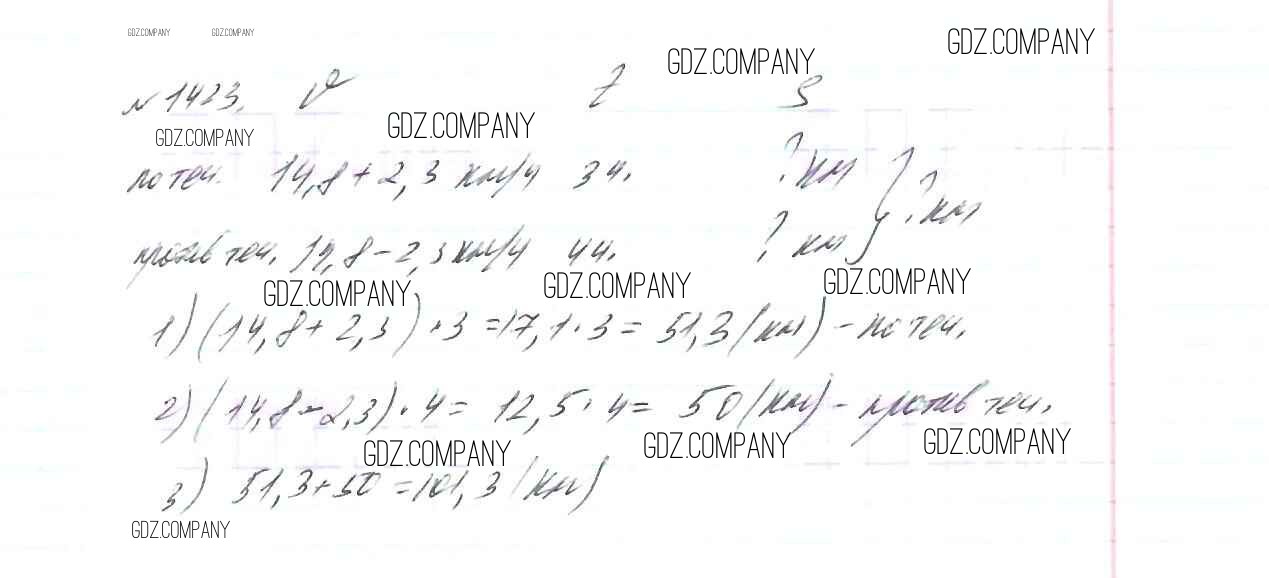 GDZ.COMPANY GDZ.COMPANY GDZ.COMPANY
GDZ.COMPANY
№ 1423. v t S
GDZ.COMPANY GDZ.COMPANY
по теч. 14,8+2,3 км/ч 3ч. ? км } ? км
против теч. 14,8-2,3 км/ч 4ч. ? км
GDZ.COMPANY GDZ.COMPANY GDZ.COMPANY
1) (14,8+2,3)·3=17,1·3=51,3(км) - по теч.
2) (14,8-2,3)·4=12,5·4=50(км) - против теч.
GDZ.COMPANY GDZ.COMPANY GDZ.COMPANY
3) 51,3+50=101,3(км)
GDZ.COMPANY